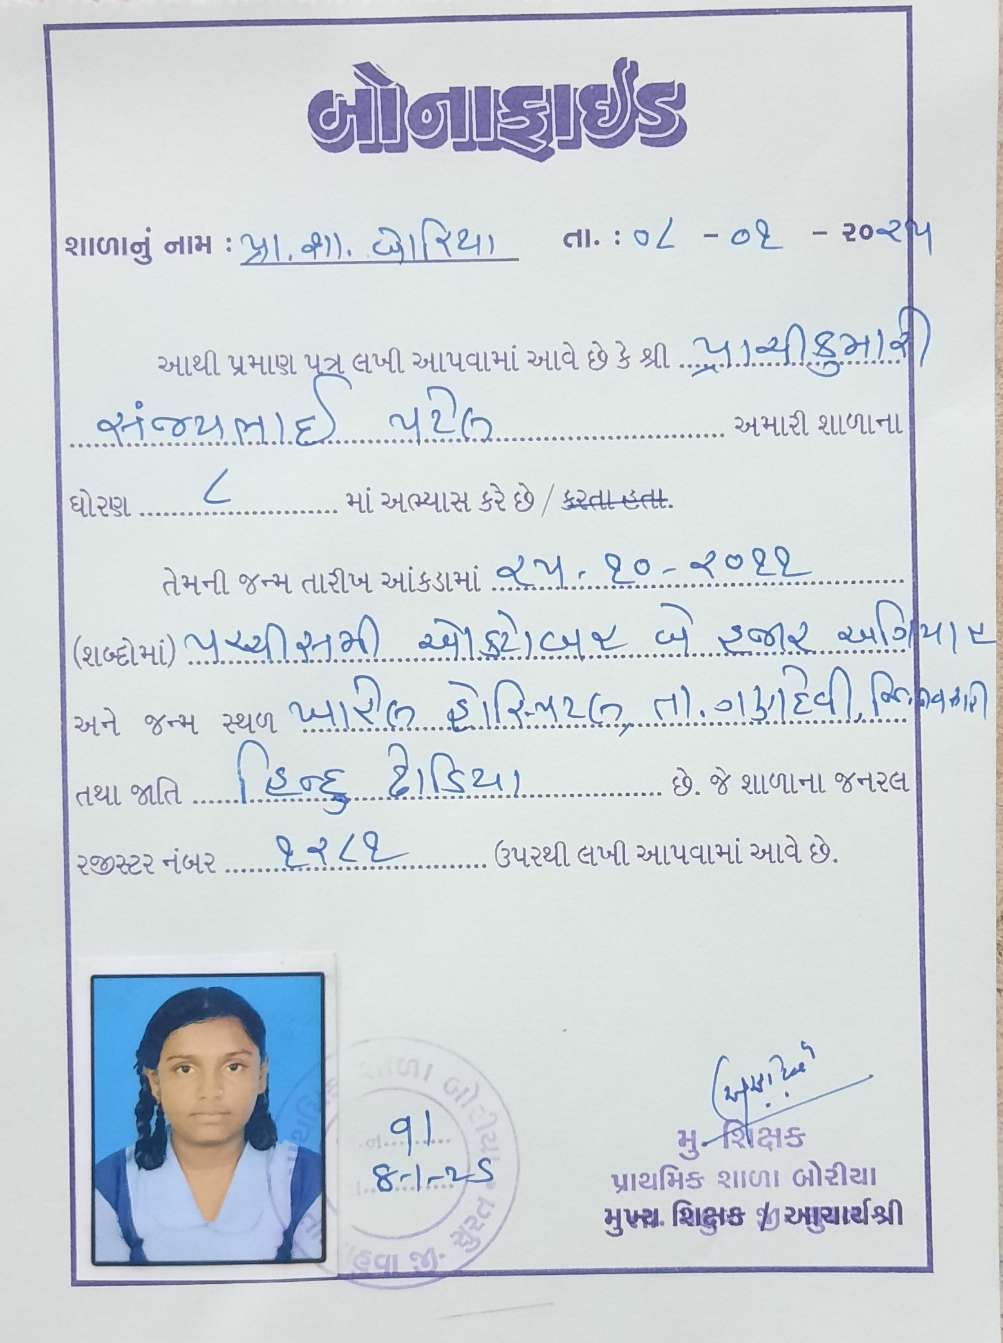 બોનાફાઈડ
શાળાનું નામ : પ્રા. શા. બોરિયા તા. : ૦૮ - ૦૧ - ૨૦૨૫
આથી પ્રમાણ પત્ર લખી આપવામાં આવે છે કે શ્રી પ્રાચીકુમારી
સંજયભાઈ પટેલ અમારી શાળાના
ધોરણ ૮ માં અભ્યાસ કરે છે / કરતા હતા.
તેમની જન્મ તારીખ આંકડામાં ૨૫-૧૦-૨૦૧૧
(શબ્દોમાં) પચ્ચીસમી ઓક્ટોબર બે હજાર અગિયાર
અને જન્મ સ્થળ ખારેલ હોસ્પિટલ, તા. ગણદેવી, જિ. નવસારી
તથા જાતિ હિન્દુ ઢોડિયા છે. જે શાળાના જનરલ
રજીસ્ટર નંબર ૧૨૮૧ ઉપરથી લખી આપવામાં આવે છે.
શાળા બોરીયા
સુરત
હવા જી.
91
8-1-25
મુ. શિક્ષક
પ્રાથમિક શાળા બોરીયા
મુખ્ય શિક્ષક / આચાર્યશ્રી